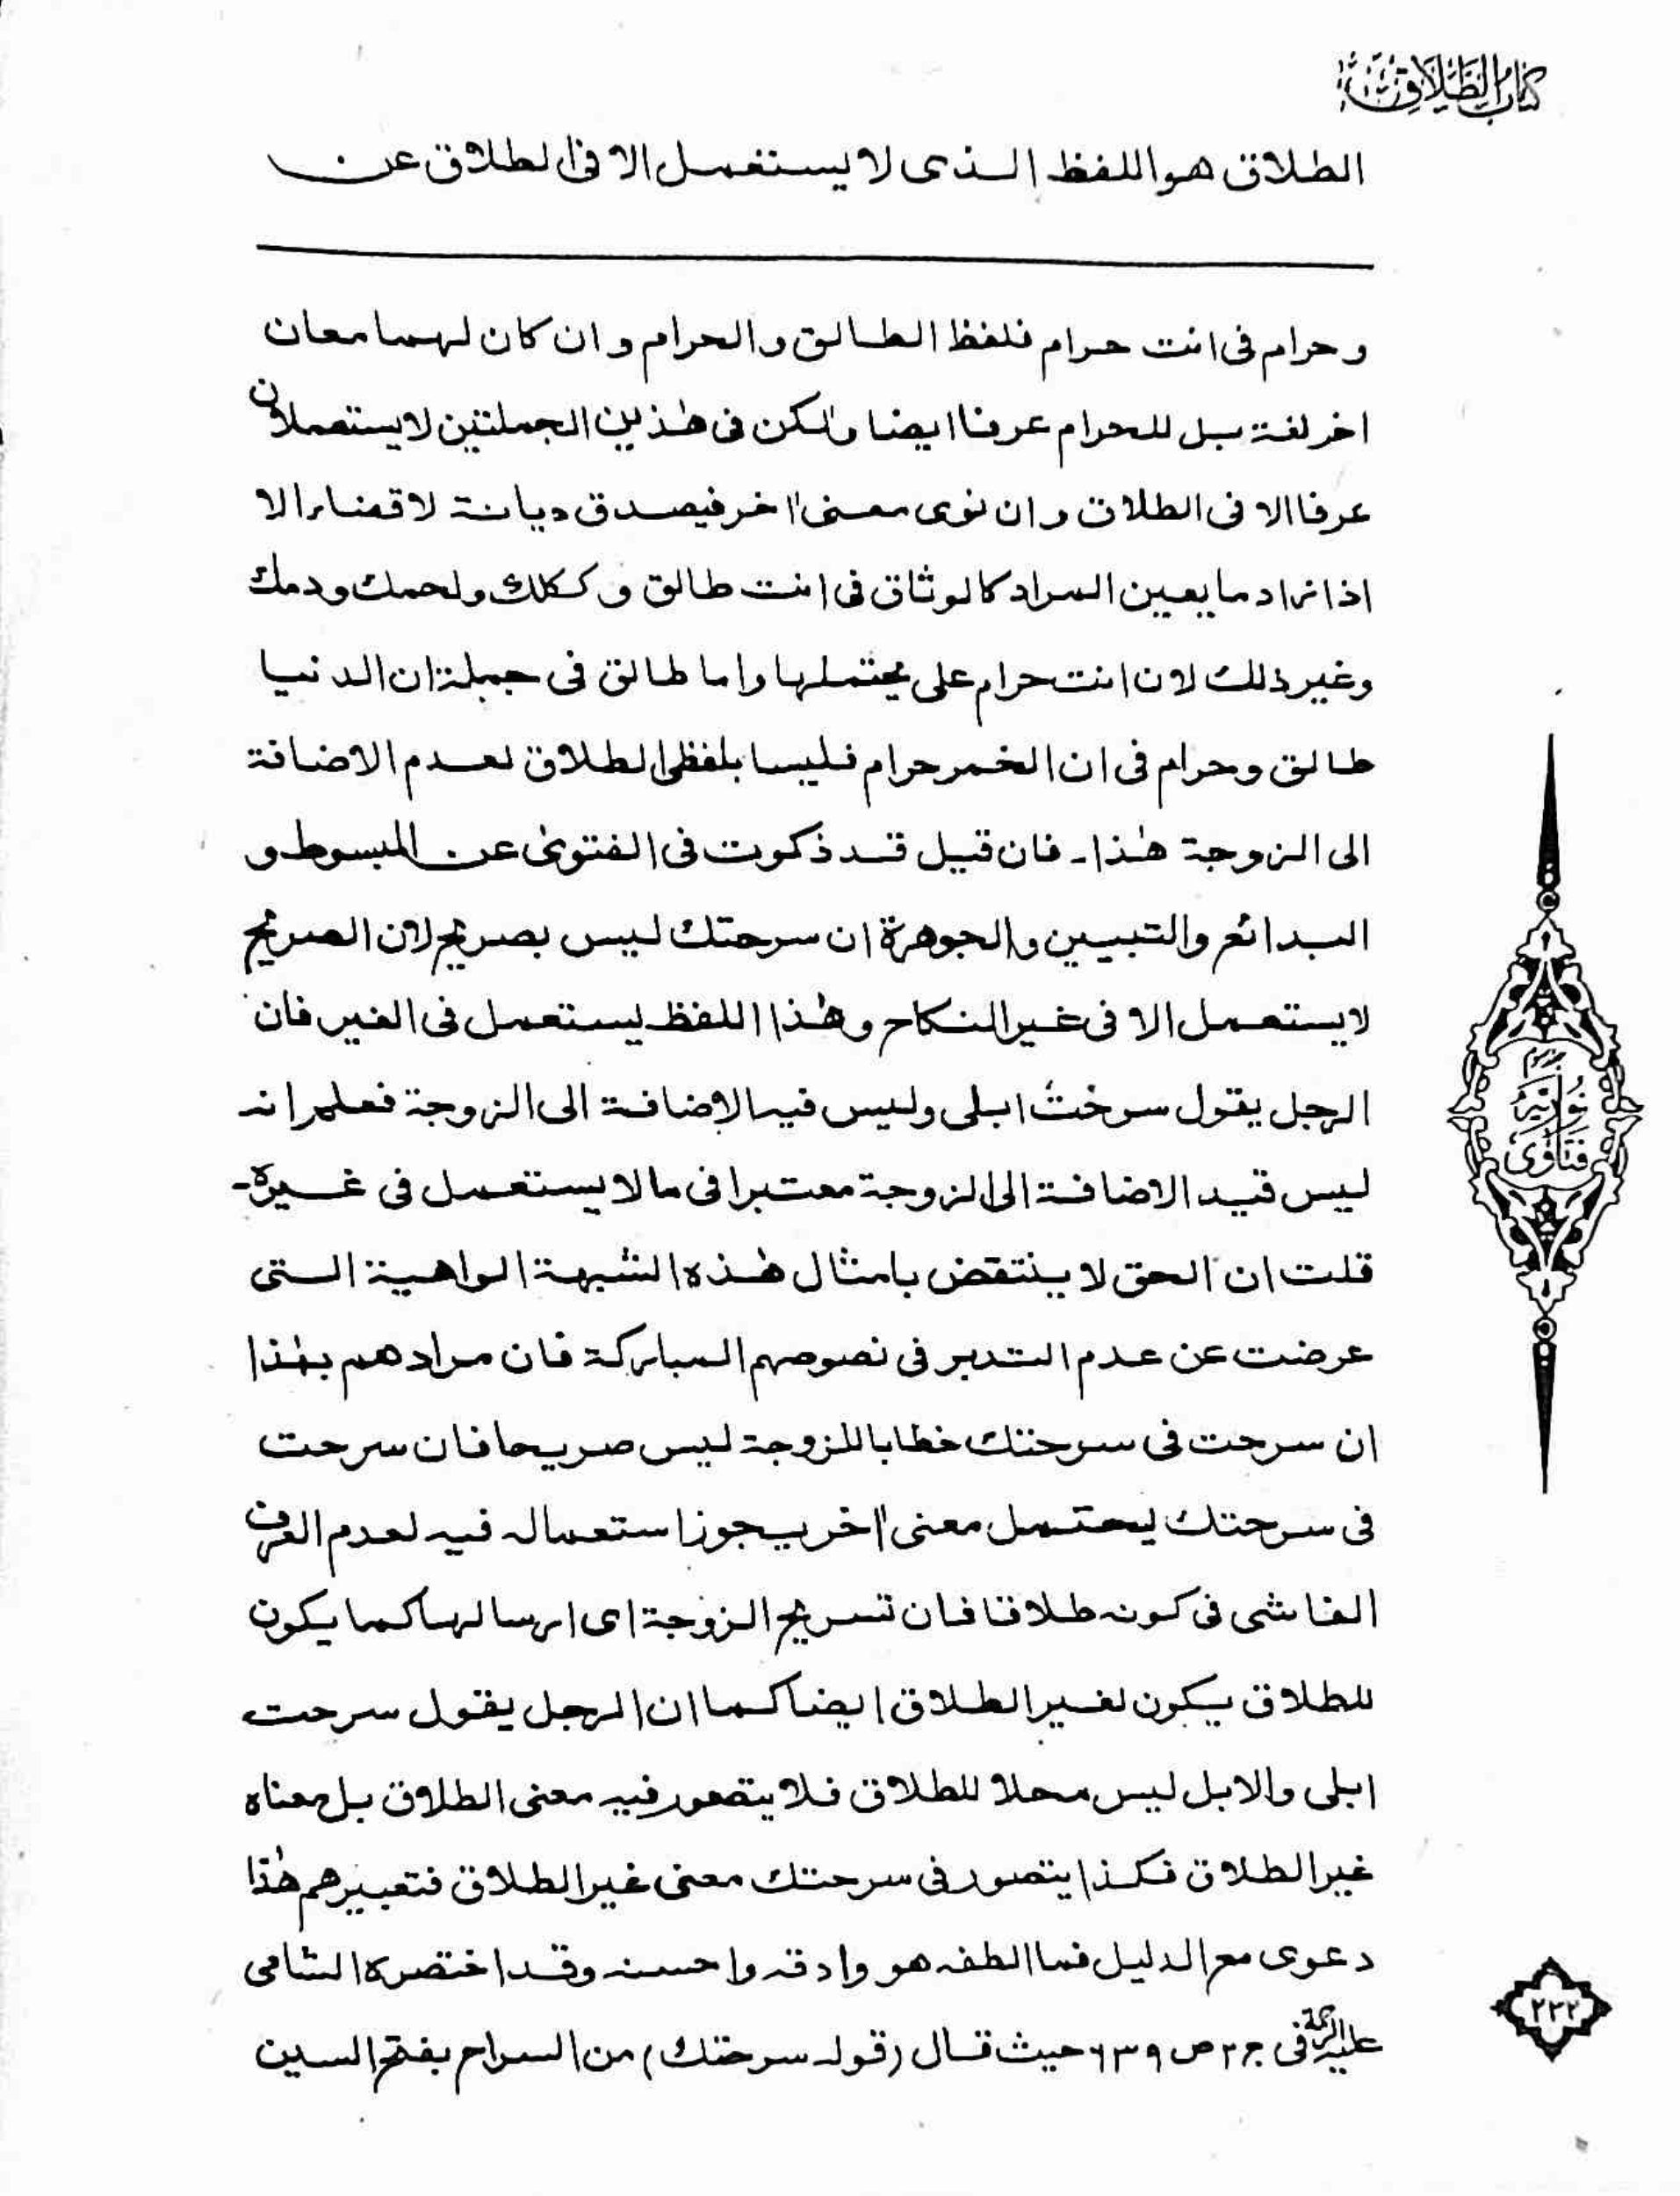 كتاب الطلاق
الطلاق هو اللفظ الذى لا يستعمل الا فى الطلاق عن
و حرام فى انت حرام فلفظ الطالق و الحرام و ان كان لهما معان
اخر لغة بل للحرام عرفا ايضا ولكن فى هٰذين الجملتين لا يستعملان
عرفا الا فى الطلاق و ان نوى معنى اٰخر فيصدق ديانة لا قضاء الا
اذا زاد ما يعين المراد كالوثاق فى انت طالق و ككلك ولحمك ودمك
وغير ذلك لان انت حرام على يحتملها واما طالق فى جملة ان الدنيا
طالق وحرام فى ان الخمر حرام فليسا بلفظى الطلاق لعدم الاضافة
الى الزوجة هٰذا۔ فان قيل قد ذكرت فى الفتوىٰ عن المبسوط و
البدائع والتبيين والجوهرة ان سرحتك ليس بصريح لان الصريح
لا يستعمل الا فى غير النكاح وهٰذا اللفظ يستعمل فى الغير فان
الرجل يقول سرحت ابلى وليس فيه الاضافة الى الزوجة فعلم انه
ليس قيد الاضافة الى الزوجة معتبرا فى ما لا يستعمل فى غيره۔
قلت ان الحق لا ينتقض بامثال هٰذه الشبهة الواهية التى
عرضت عن عدم التدبر فى نصوصهم المباركة فان مرادهم بهٰذا
ان سرحت فى سرحتك خطابا للزوجة ليس صريحا فان سرحت
فى سرحتك يحتمل معنى اٰخر يجوز استعماله فيه لعدم العرف
الفاشى فى كونه طلاقا فان تسريح الزوجة اى ارسالها كما يكون
للطلاق يكون لغير الطلاق ايضا كما ان الرجل يقول سرحت
ابلى والابل ليس محلا للطلاق فلا يتصور فيه معنى الطلاق بل معناه
غير الطلاق فكذا يتصور فى سرحتك معنى غير الطلاق فتعبيرهم هٰذا
دعوى مع الدليل فما الطفه هو وادقه واحسنه وقد اختصره الشامى
عليه الرحمة فى ج ٢ ص ٦٣٩ حيث قال (قوله سرحتك) من السراح بفتح السين
فتاوىٰ نوريه
٢٣٢